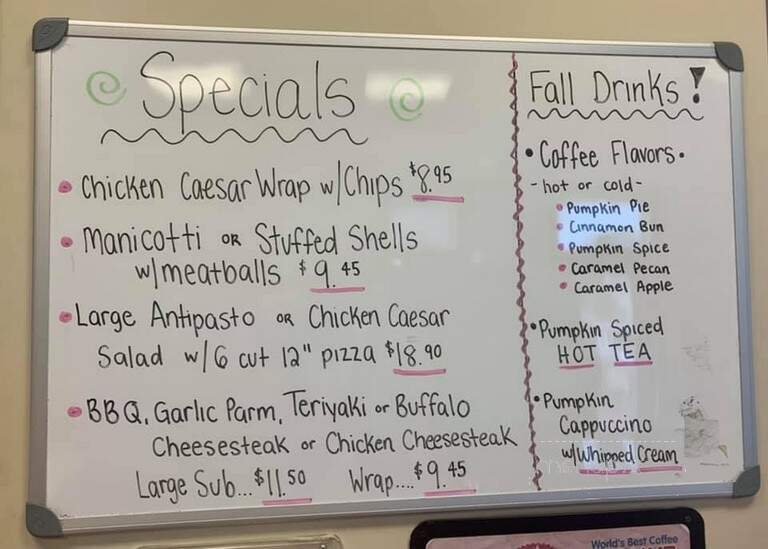 Specials
• Chicken Caesar Wrap w/Chips $8.95
• Manicotti OR Stuffed Shells
w/meatballs $9.45
• Large Antipasto OR Chicken Caesar
Salad w/6 cut 12" pizza $18.90
• BBQ, Garlic Parm, Teriyaki or Buffalo
Cheesesteak or Chicken Cheesesteak
Large Sub... $11.50 Wrap.... $9.45
Fall Drinks!
• Coffee Flavors •
- hot or cold -
• Pumpkin Pie
• Cinnamon Bun
• Pumpkin Spice
• Caramel Pecan
• Caramel Apple
• Pumpkin Spiced
HOT TEA
• Pumpkin
Cappuccino
w/Whipped Cream
World's Best Coffee